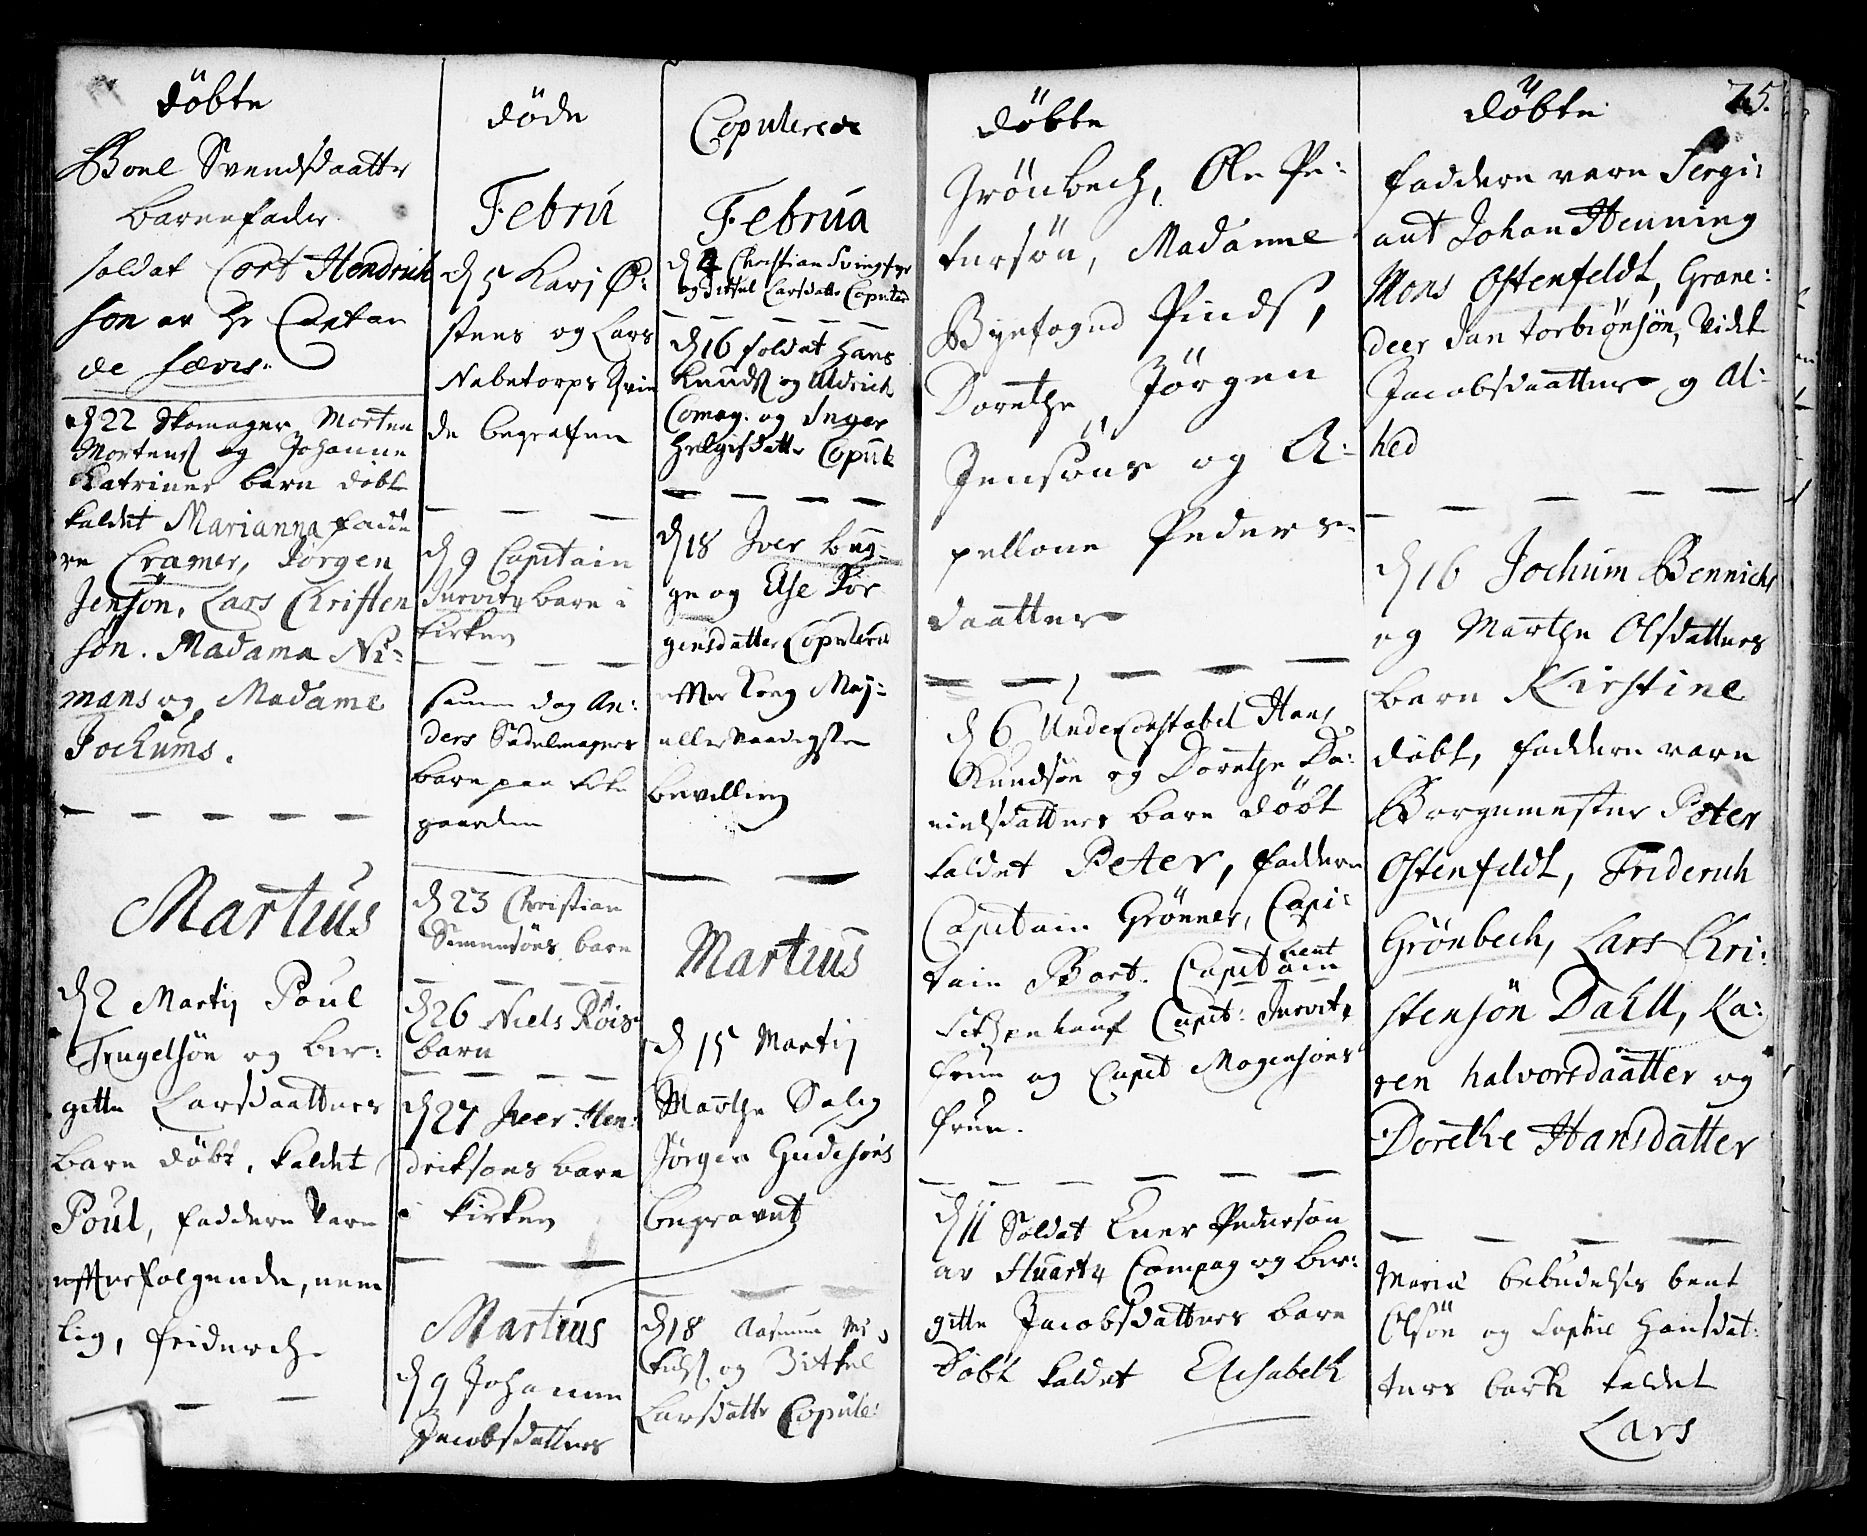 döbte
Boel Svendsdaatter
barnefader
soldat Cort Hendrich
son av Hr Captan
de Sævis.
d 22 Skomager Morten
Mortens og Johanne
Katrines barn döbt
kaldet Marianna fadde
re Cramer, Jörgen
Jensön, Lars Christen
sön. Madama Ni-
mans og Madame
Jochums.
Martius
d 2 Martij Poul
Trugelsön og bir-
gitte Larsdaatters
barn döbt, kaldet
Poul, faddere vare
efterfölgende, nem
lig, friderch
döde
Febru
d 5 Karj Ø-
stens og Lars
Nabetorps Qvin
de begrafen
d 9 Capitain
Jurvitz barn i
kirken
samme dag An-
ders Sadelmagers
barn paa kirke
gaarden
d 23 Christian
Simensöns barn
d 26 Niels Röis
barn
d 27 Peer Hen-
driksons barn
i kirken
Martius
d 9 Johanne
Jacobsdatters
Copulerede
Februa
d 4 Christian
og Sitsel Larsdatter Copulered
d 16 soldat Hans
Knuds og Uldrich
Comag. og Inger
Helgesdatter Copule
d 18 Iver Bug-
ge og Else Jör
gensdatter Copulered
efter Kong Maj-
allernaadigste
bevilling
Martius
d 15 Martij
Marthe Salig
Jörgen Gudesöns
begravet
d 18 Aasmun
og Sitsel
Larsdatter Copule:
döbte
Grönbech, Ole Pe-
tersön, Madame
Byefogned Pinds,
Dorethe Jörgen
Jensöns og A-
pellone Peders-
daatter
d 6 UnderConstabel Hans
Knudsön og Dorethe Da-
nielsdatters barn dööbt
kaldet Peter, faddere
Capitain Grönner, Capi-
tain Bort. Capit Lieut
Capit: Jurvitz
frue og Capit Mogensöns
frue.
d 11 Soldat Ener Pedersön
av Stuartz Compag og bir-
gitte Jacobsdatters barn
Döbt kaldet Elisabeth
döbte
75.
faddere vare Sergi-
ant Johan Henning
Mons Ostenfeldt, Grane-
deer Jan torbiönsön, Kidt
Jacobsdaatter og Al-
hed
d 16 Jochum Bennichs
og Marthe Olsdatters
barn Kirstine
döbt, faddere vare
Borgemester Peter
Ostenfeldt, Friderich
Grönbech, Lars Chri-
stensön Dahll, Ka-
ren halvorsdaatter og
Dorethe Hansdatter
Mariæ bebudelses bent
Olsön og Sophie Hansdat-
ters barn kaldet
Lars